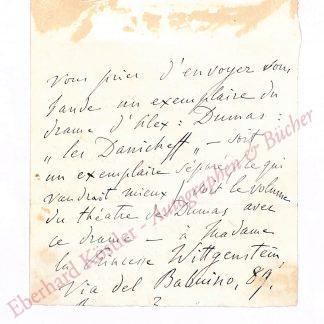 vous prier d'envoyer sans
tarde un exemplaire du
drame d'Alex: Dumas:
„les Danicheff" – soit
un exemplaire séparé ce qui
vaudrait mieux soit le volume
du théâtre de Dumas avec
ce drame – à Madame
la Princesse Wittgenstein,
Via del Babuino, 89.
Eberhard Köstler - Autographen & Bücher